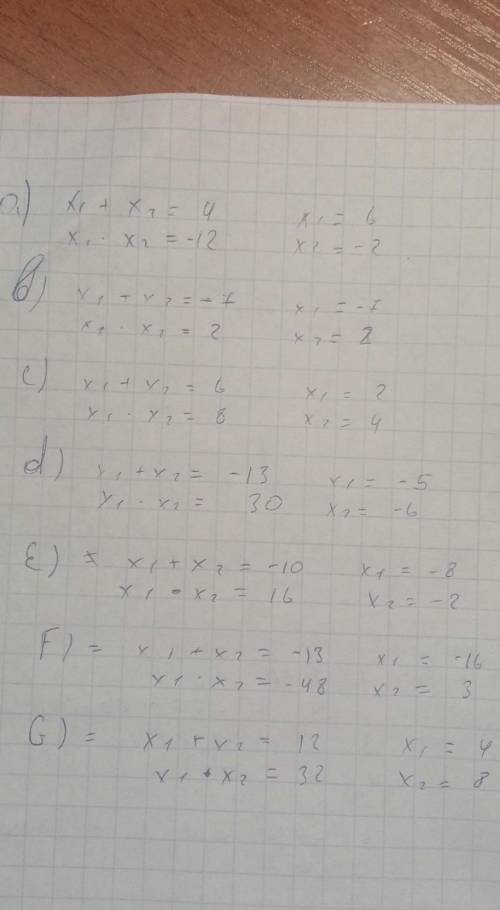 a) x₁ + x₂ = 4 x₁ = 6
x₁ · x₂ = -12 x₂ = -2
b) x₁ + x₂ = -7 x₁ = -7
x₁ · x₂ = 2 x₂ = 2
c) x₁ + x₂ = 6 x₁ = 2
x₁ · x₂ = 8 x₂ = 4
d) x₁ + x₂ = -13 x₁ = -5
x₁ · x₂ = 30 x₂ = -6
E) = x₁ + x₂ = -10 x₁ = -8
x₁ · x₂ = 16 x₂ = -2
F) = x₁ + x₂ = -13 x₁ = -16
x₁ · x₂ = -48 x₂ = 3
G) = x₁ + x₂ = 12 x₁ = 4
x₁ · x₂ = 32 x₂ = 8